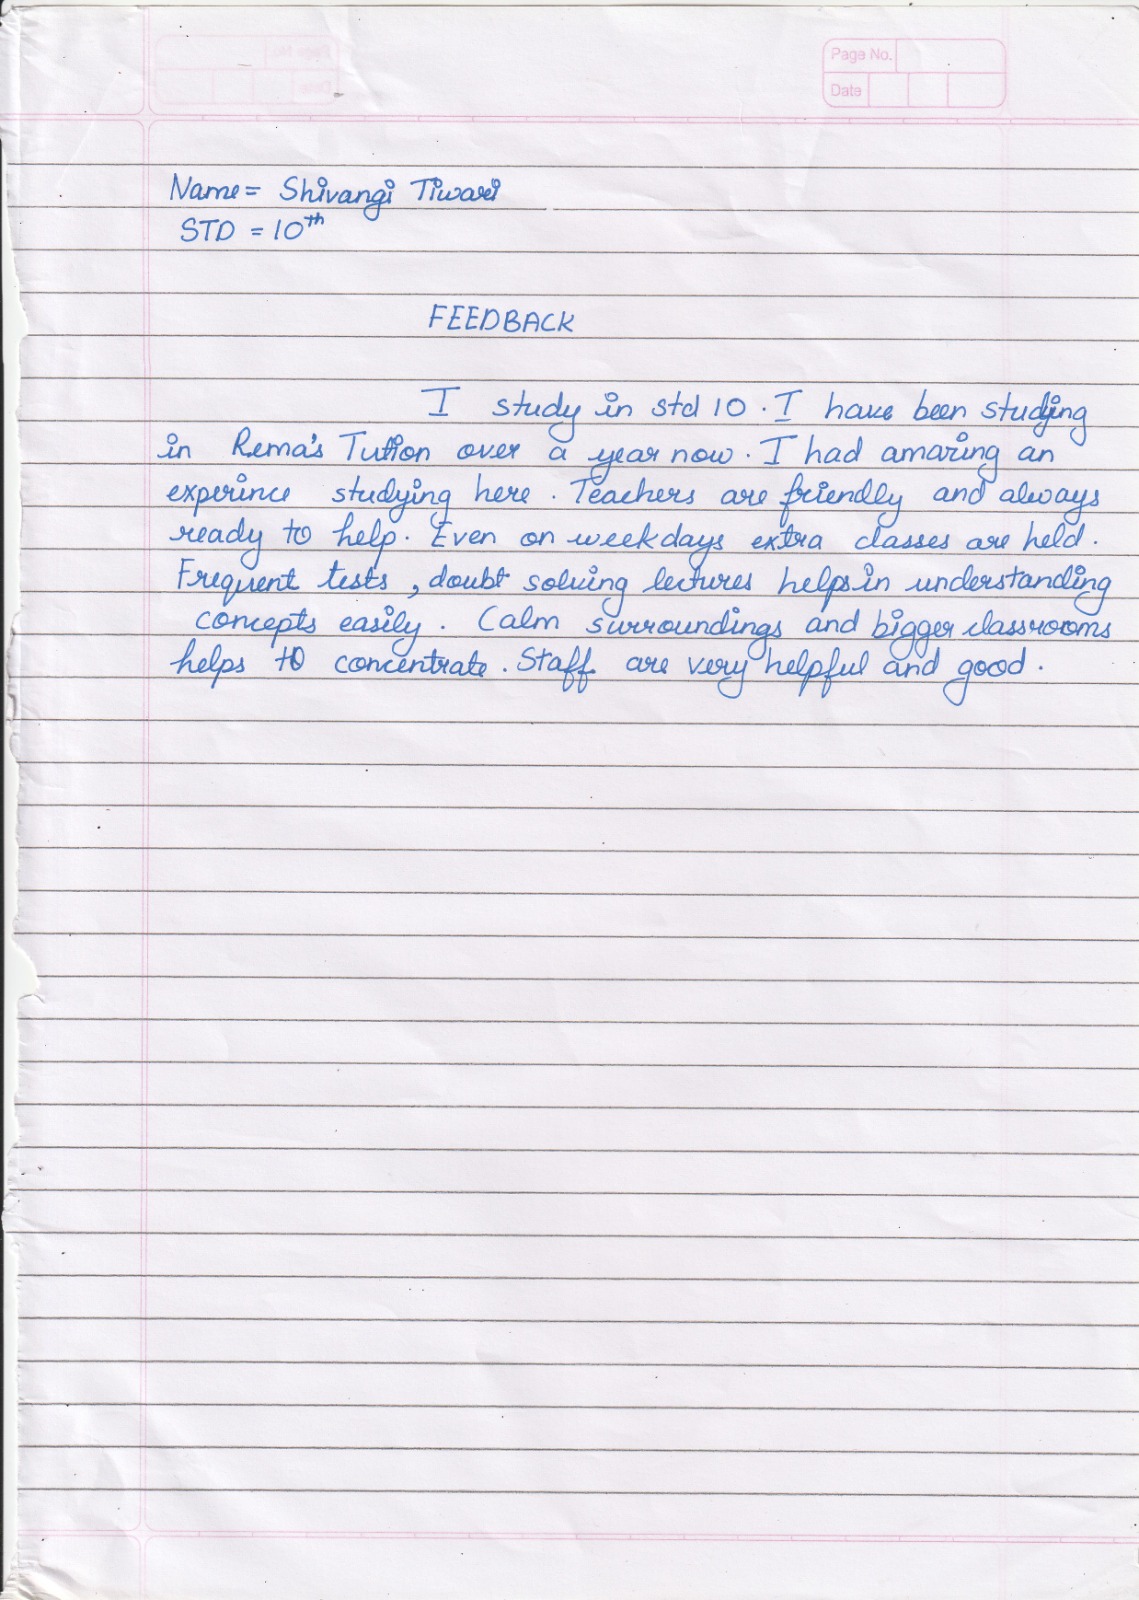 Page No.
Date
Name = Shivangi Tiwari
STD = 10th
FEEDBACK
I study in std 10. I have been studying
in Rema's Tution over a year now. I had amazing an
experince studying here. Teachers are friendly and always
ready to help. Even on weekdays extra classes are held.
Frequent tests, doubt solving lectures helps in understanding
concepts easily. Calm surroundings and bigger classrooms
helps to concentrate. Staff are very helpful and good.